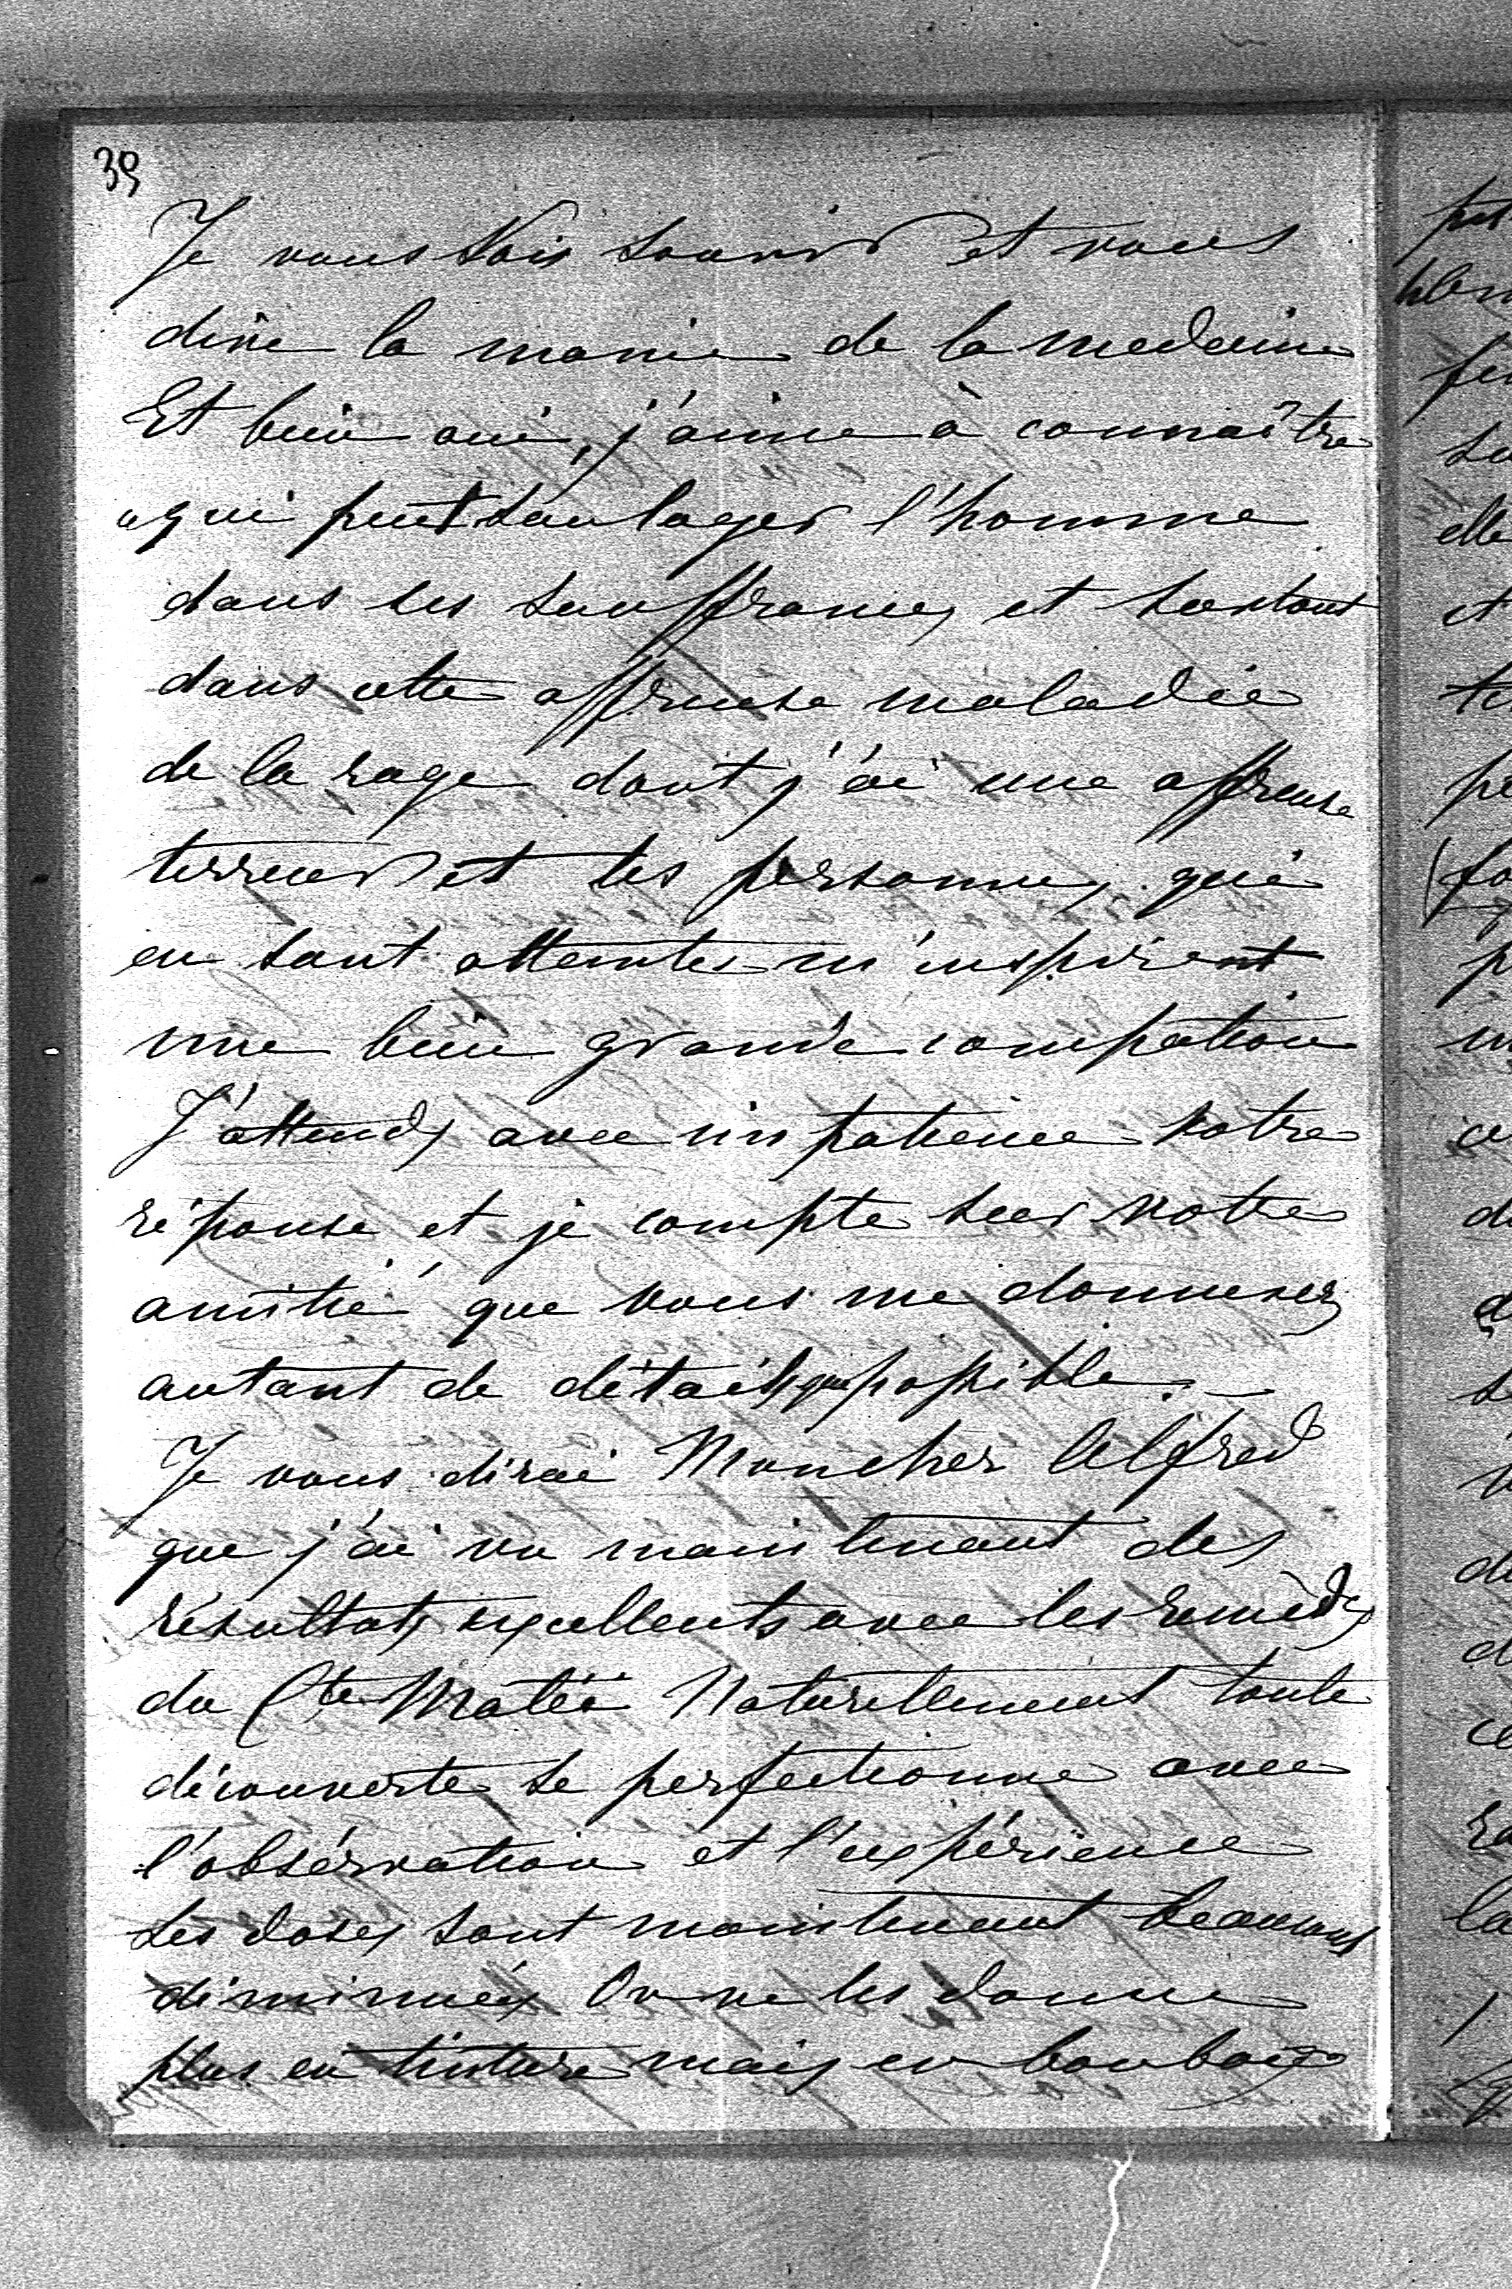 39
Je vous vois sourir et vous
dire la manie de la medecine
Et bien oui, j'aime à connaître
qui peut soulager l'homme
dans ses souffrances et surtout
dans cette affreuse maladie
de la rage dont j'ai une affreuse
terreur et les personnes qui
en sont atteintes m'inspirent
une bien grande compation
J'attends avec impatience votre
réponse et je compte sur votre
amitié que vous me donnerez
autant de détails que possible. –
Je vous dirai Mon cher Alfred
que j'ai vu maintenant des
résultats excellents avec les remèdes
du Cte Matéï Naturellement toute
découverte se perfectionne avec
l'observation et l'expérience
Les doses sont maintenant beaucoup
diminuées On ne les donne
plus en tinture mais en bonbons